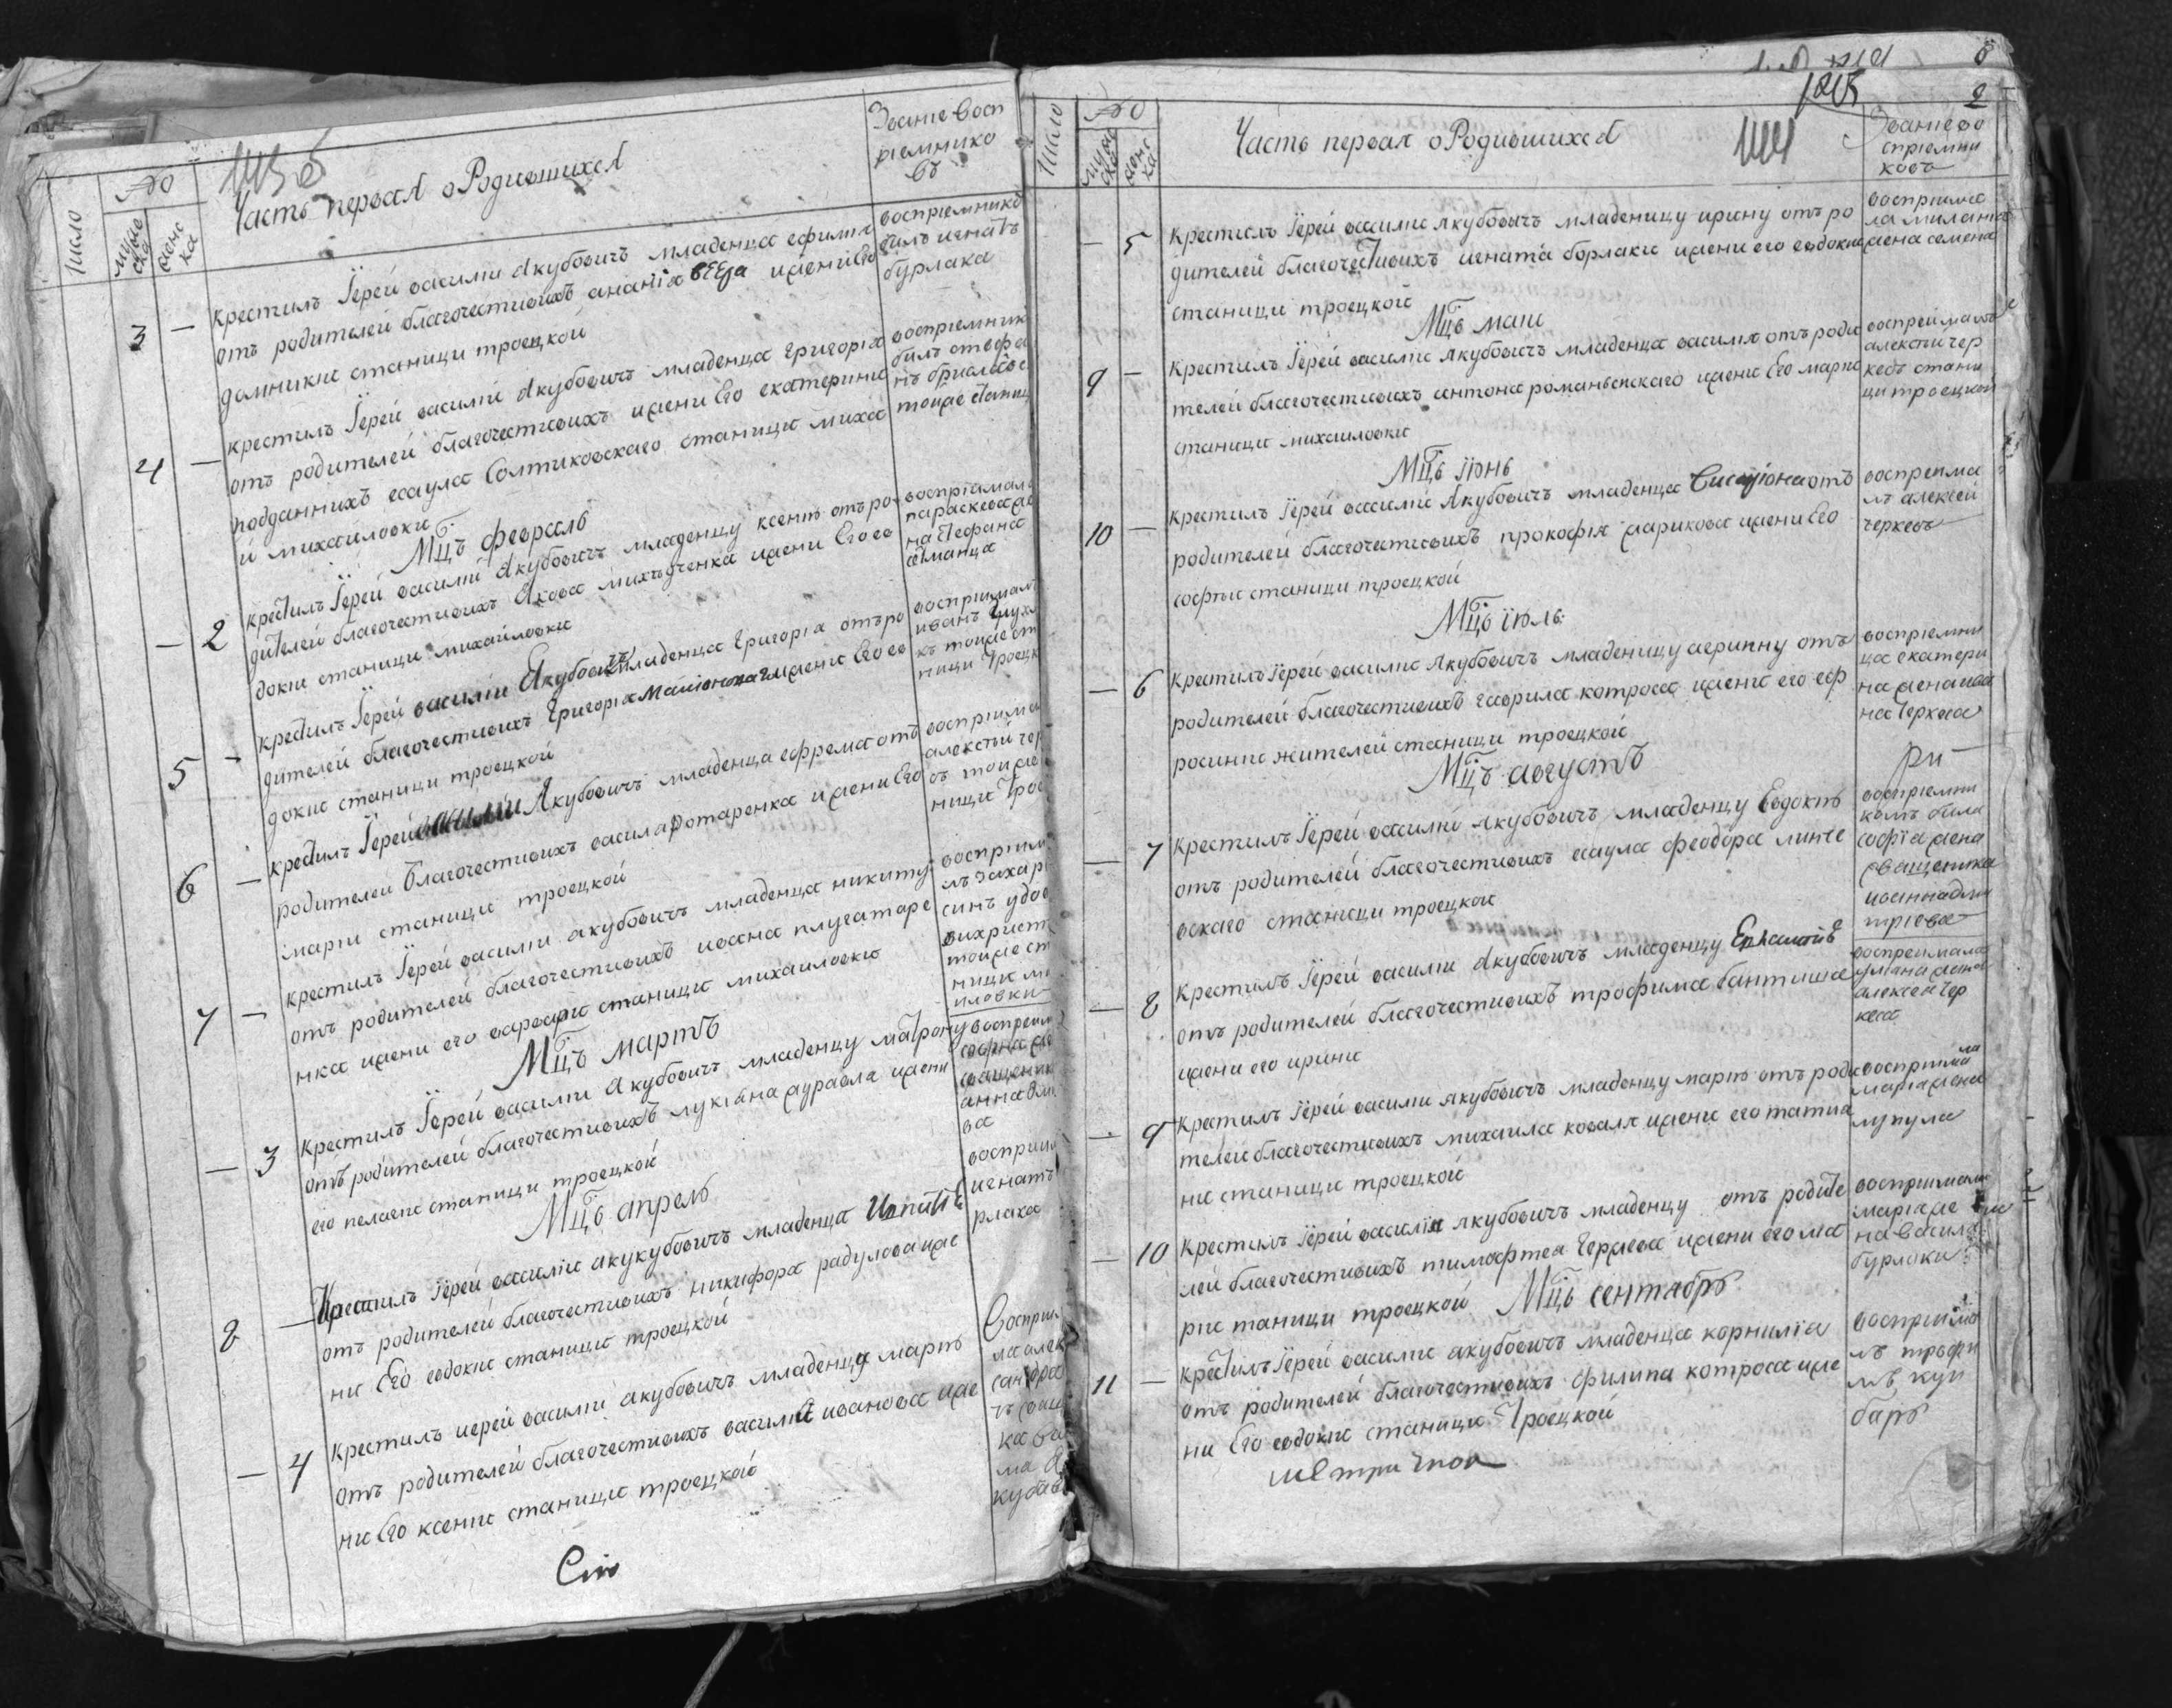 Число
№
мужеска
женска
Часть первая о Родившихся
Званіе восп
ріемнико
въ
3 — крестилъ Іерей василій Якубовичъ младенца ефимія
отъ родителей благочестивихъ ананія жени Его
домникіи станици троецкой
воспріемнико
билъ игнатъ
бурлака
4 — крестилъ Іерей василій Якубовичъ младенца григорія
отъ родителей благочестивихъ жени Его екатерини
подданнихъ есаула Солтиковскаго станици миха
й михайловки
воспріемник
билъ стефа
нъ
тоиже станиц
Мцъ февраль
— 2 крестилъ Іерей василій Якубовичъ младенцу ксенію отъ ро
дителей благочестивихъ Якова жени Его ев
докіи станици михайловки
воспріимала
параскева же
на Стефана
5 — крестилъ Іерей василій Якубовичъ младенца григорія отъ ро
дителей благочестивихъ григорія жени Его ев
докіи станици троецкой
воспріималъ
иванъ
тоиже ст
ници Троецк
6 — крестилъ Іерей василій Якубовичъ младенца ефрема отъ
родителей благочестивихъ василя ротаренка жени Его
маріи станици троецкой
воспріима
алексѣй чер
въ тоиже
ници Трое
7 — крестилъ Іерей василій якубовичъ младенца никиту
отъ родителей благочестивихъ ивана плугатаре
нка жени его варвари станици михаиловки
воспріим
лъ захар
синъ удов
тоиже ст
ници ми
иловки
Мцъ мартъ
— 3 крестилъ Іерей василій якубовичъ младенцу матрону
отъ родителей благочестивихъ лукіана журавля жени
его пелагіи станици троецкой
воспреим
софиа же
священик
анна
ва
Мцъ апрель
8 — Крестилъ Іерей василіи акукубовичъ младенца
отъ родителей благочестивихъ никифора радулова же
ни Его евдокіи станици троецкой
восприи
игнатъ
рлака
— 4 крестилъ иерей василій якубовичъ младенцу марію
отъ родителей благочестивихъ василія иванова же
ни Его ксеніи станици троецкой
Восприи
ла алек
сандра
ка
ма Я
кубов
Сію
1815
2
Число
№
мужеска
женска
Часть первая о Родившихся
Званіе во
спріемни
ковъ
— 5 крестилъ Іерей василіи Якубовичъ младеницу ирину отъ ро
дителей благочестивихъ игната борлаки жени его евдокии
станици троецкой
воспріима
ла милания
жена семена
Мцъ маи
9 — крестилъ Іерей василіи Якубовичъ младенца василія отъ роди
телей благочестивихъ антона романовскаго жени Его марии
станици михаиловки
воспреималъ
алексѣи чер
кесъ стани
ци троецкой
Мцъ іюнь
10 — крестилъ Іерей василіи Якубовичъ младенца отъ
родителей благочестивихъ прокофія марикова жени Его
софіи станици троецкой
воспреима
лъ алексей
черкесъ
Мцъ іюль
— 6 крестилъ Іерей василіи Якубовичъ младеницу агрипну отъ
родителей благочестивихъ гаврила котроса жени его евф
росинии жителей станици троецкой
воспріемни
ца екатери
на жена ива
на Черкеса
Мцъ августъ
— 7 крестилъ Іерей василій якубовичъ младенцу Евдокію
отъ родителей благочестивихъ есаула феодора линте
вскаго станици троецкой
воспріемни
комъ била
софіа жена
священика
иоанна дми
тріева
— 8 крестилъ Іерей василіи Якубовичъ младенцу
отъ родителей благочестивихъ трофима бантиша
жени его ирини
воспреимала
улiана жена
алексея чер
кеса
— 9 крестилъ Іерей василіи якубовичъ младенцу марію отъ роди
телей благочестивихъ михаила коваля жени его татиа
ни станици троецкой
воспріима
ла
маріа жена
лупула
— 10 крестилъ Іерей василіи якубовичъ младенцу отъ родите
лей благочестивихъ тимофтеа черкеса жени его ма
ріи таници троецкой
воспріимала
маріа же
на василя
бурлаки
Мцъ сентябрь
11 — крестилъ Іерей василіи якубовичъ младенца корниліа
отъ родителей благочестивихъ филипа котроса же
ни Его евдокіи станици Троецкой
воспріима
лъ трофи
мъ куи
баръ
метричной